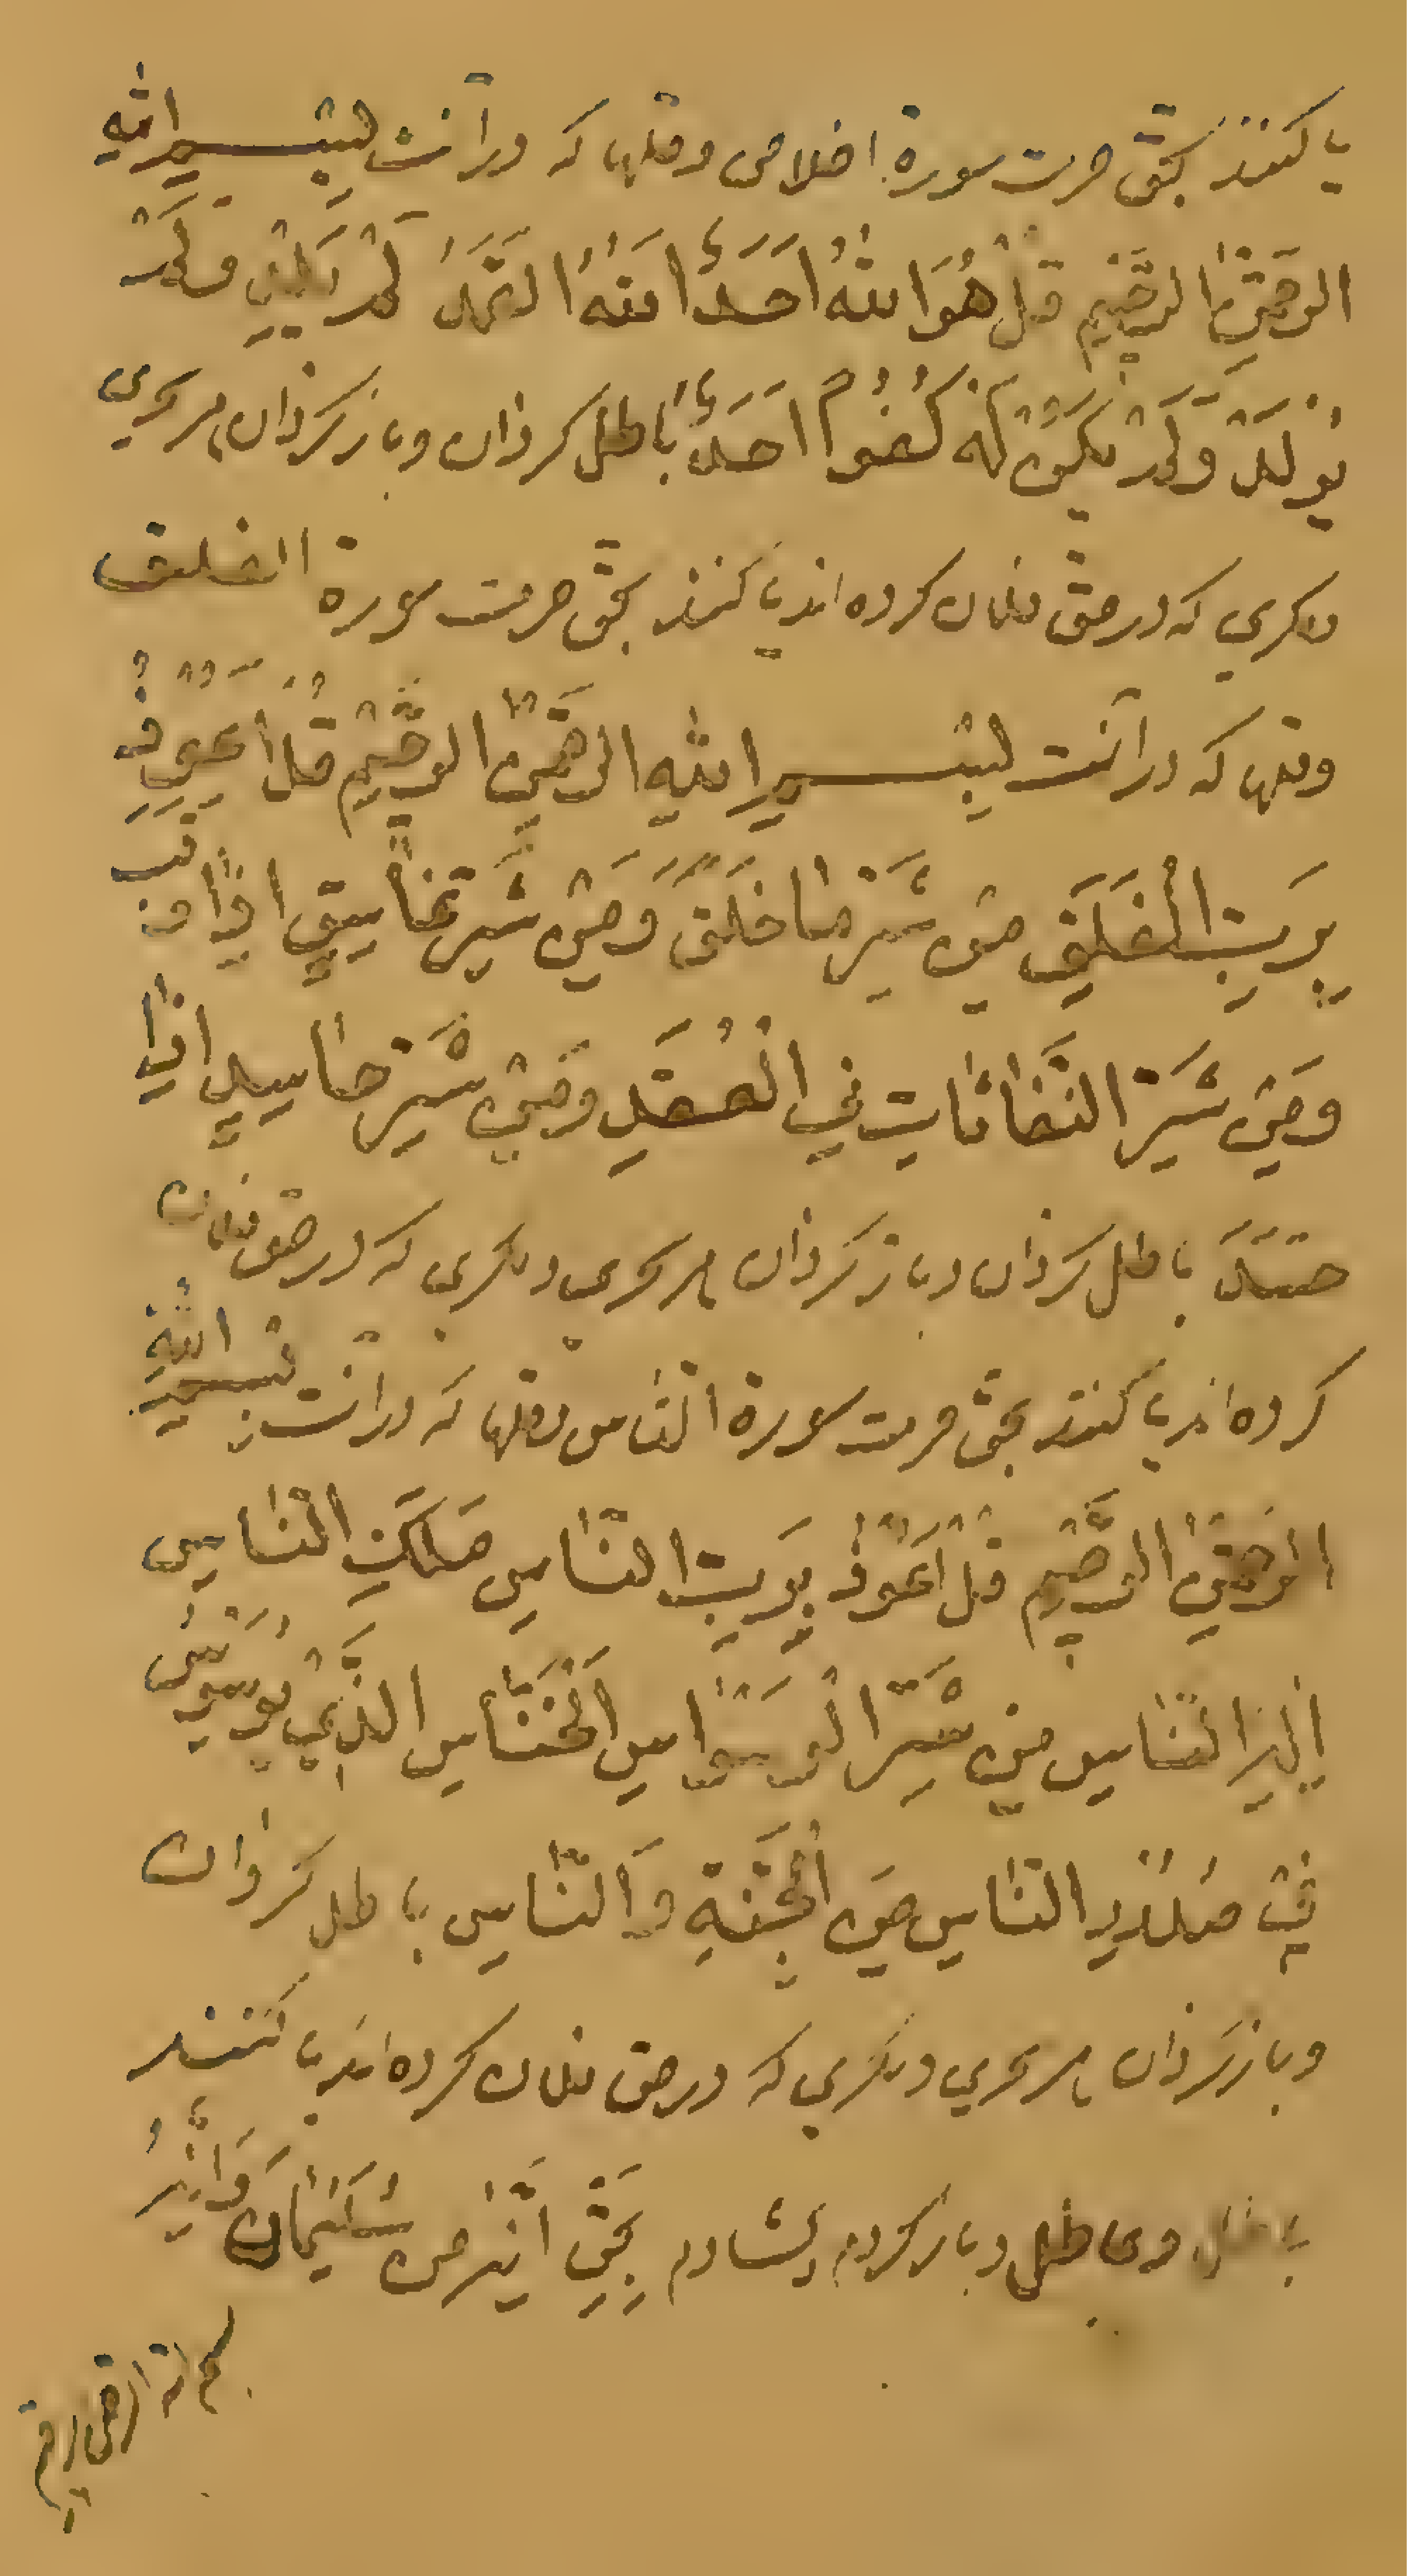 یا کنند بحق حرمت سورة اخلاص وقلها که درآنست بِسْمِ اللهِ
الرحمن الرحيم قُلْ هُوَ اللهُ اَحَدٌ اَللهُ الصَّمَدُ لَمْ يَلِدْ وَلَمْ
يُولَدْ وَلَمْ يَكُنْ لَهُ كُفُوًا اَحَدٌ باطل کردان وباز کردان هر سحری
ومکری که در حق فلان کرده اند یا کنند بحق حرمت سورة الفلق
وقلها که درآنست بِسْمِ اللهِ الرحمن الرحيم قُلْ اَعُوذُ
بِرَبِّ الْفَلَقِ مِنْ شَرِّ مَا خَلَقَ وَمِنْ شَرِّ غَاسِقٍ اِذَا وقب
وَمِنْ شَرِّ النَّفَّاثَاتِ فِي الْعُقَدِ وَمِنْ شَرِّ حَاسِدٍ اِذَا
حَسَدَ باطل کردان وباز کردان هر سحری ومکری که در حق فلان
کرده اند یا کنند بحق حرمت سورة الناس وقلها که درآنست بِسْمِ اللهِ
الرحمن الرحيم قُلْ اَعُوذُ بِرَبِّ النَّاسِ مَلِكِ النَّاسِ
اِلٰهِ النَّاسِ مِنْ شَرِّ الْوَسْوَاسِ الْخَنَّاسِ الَّذِي يُوَسْوِسُ
فِي صُدُورِ النَّاسِ مِنَ الْجِنَّةِ وَالنَّاسِ باطل کردان
وباز کردان هر سحری ومکری که در حق فلان کرده اند یا کنند
باطل وباز کردم بحق اِنَّهُ مِنْ سُلَيْمَانَ وَاِنَّهُ
بسم الله الرحمن الرحیم